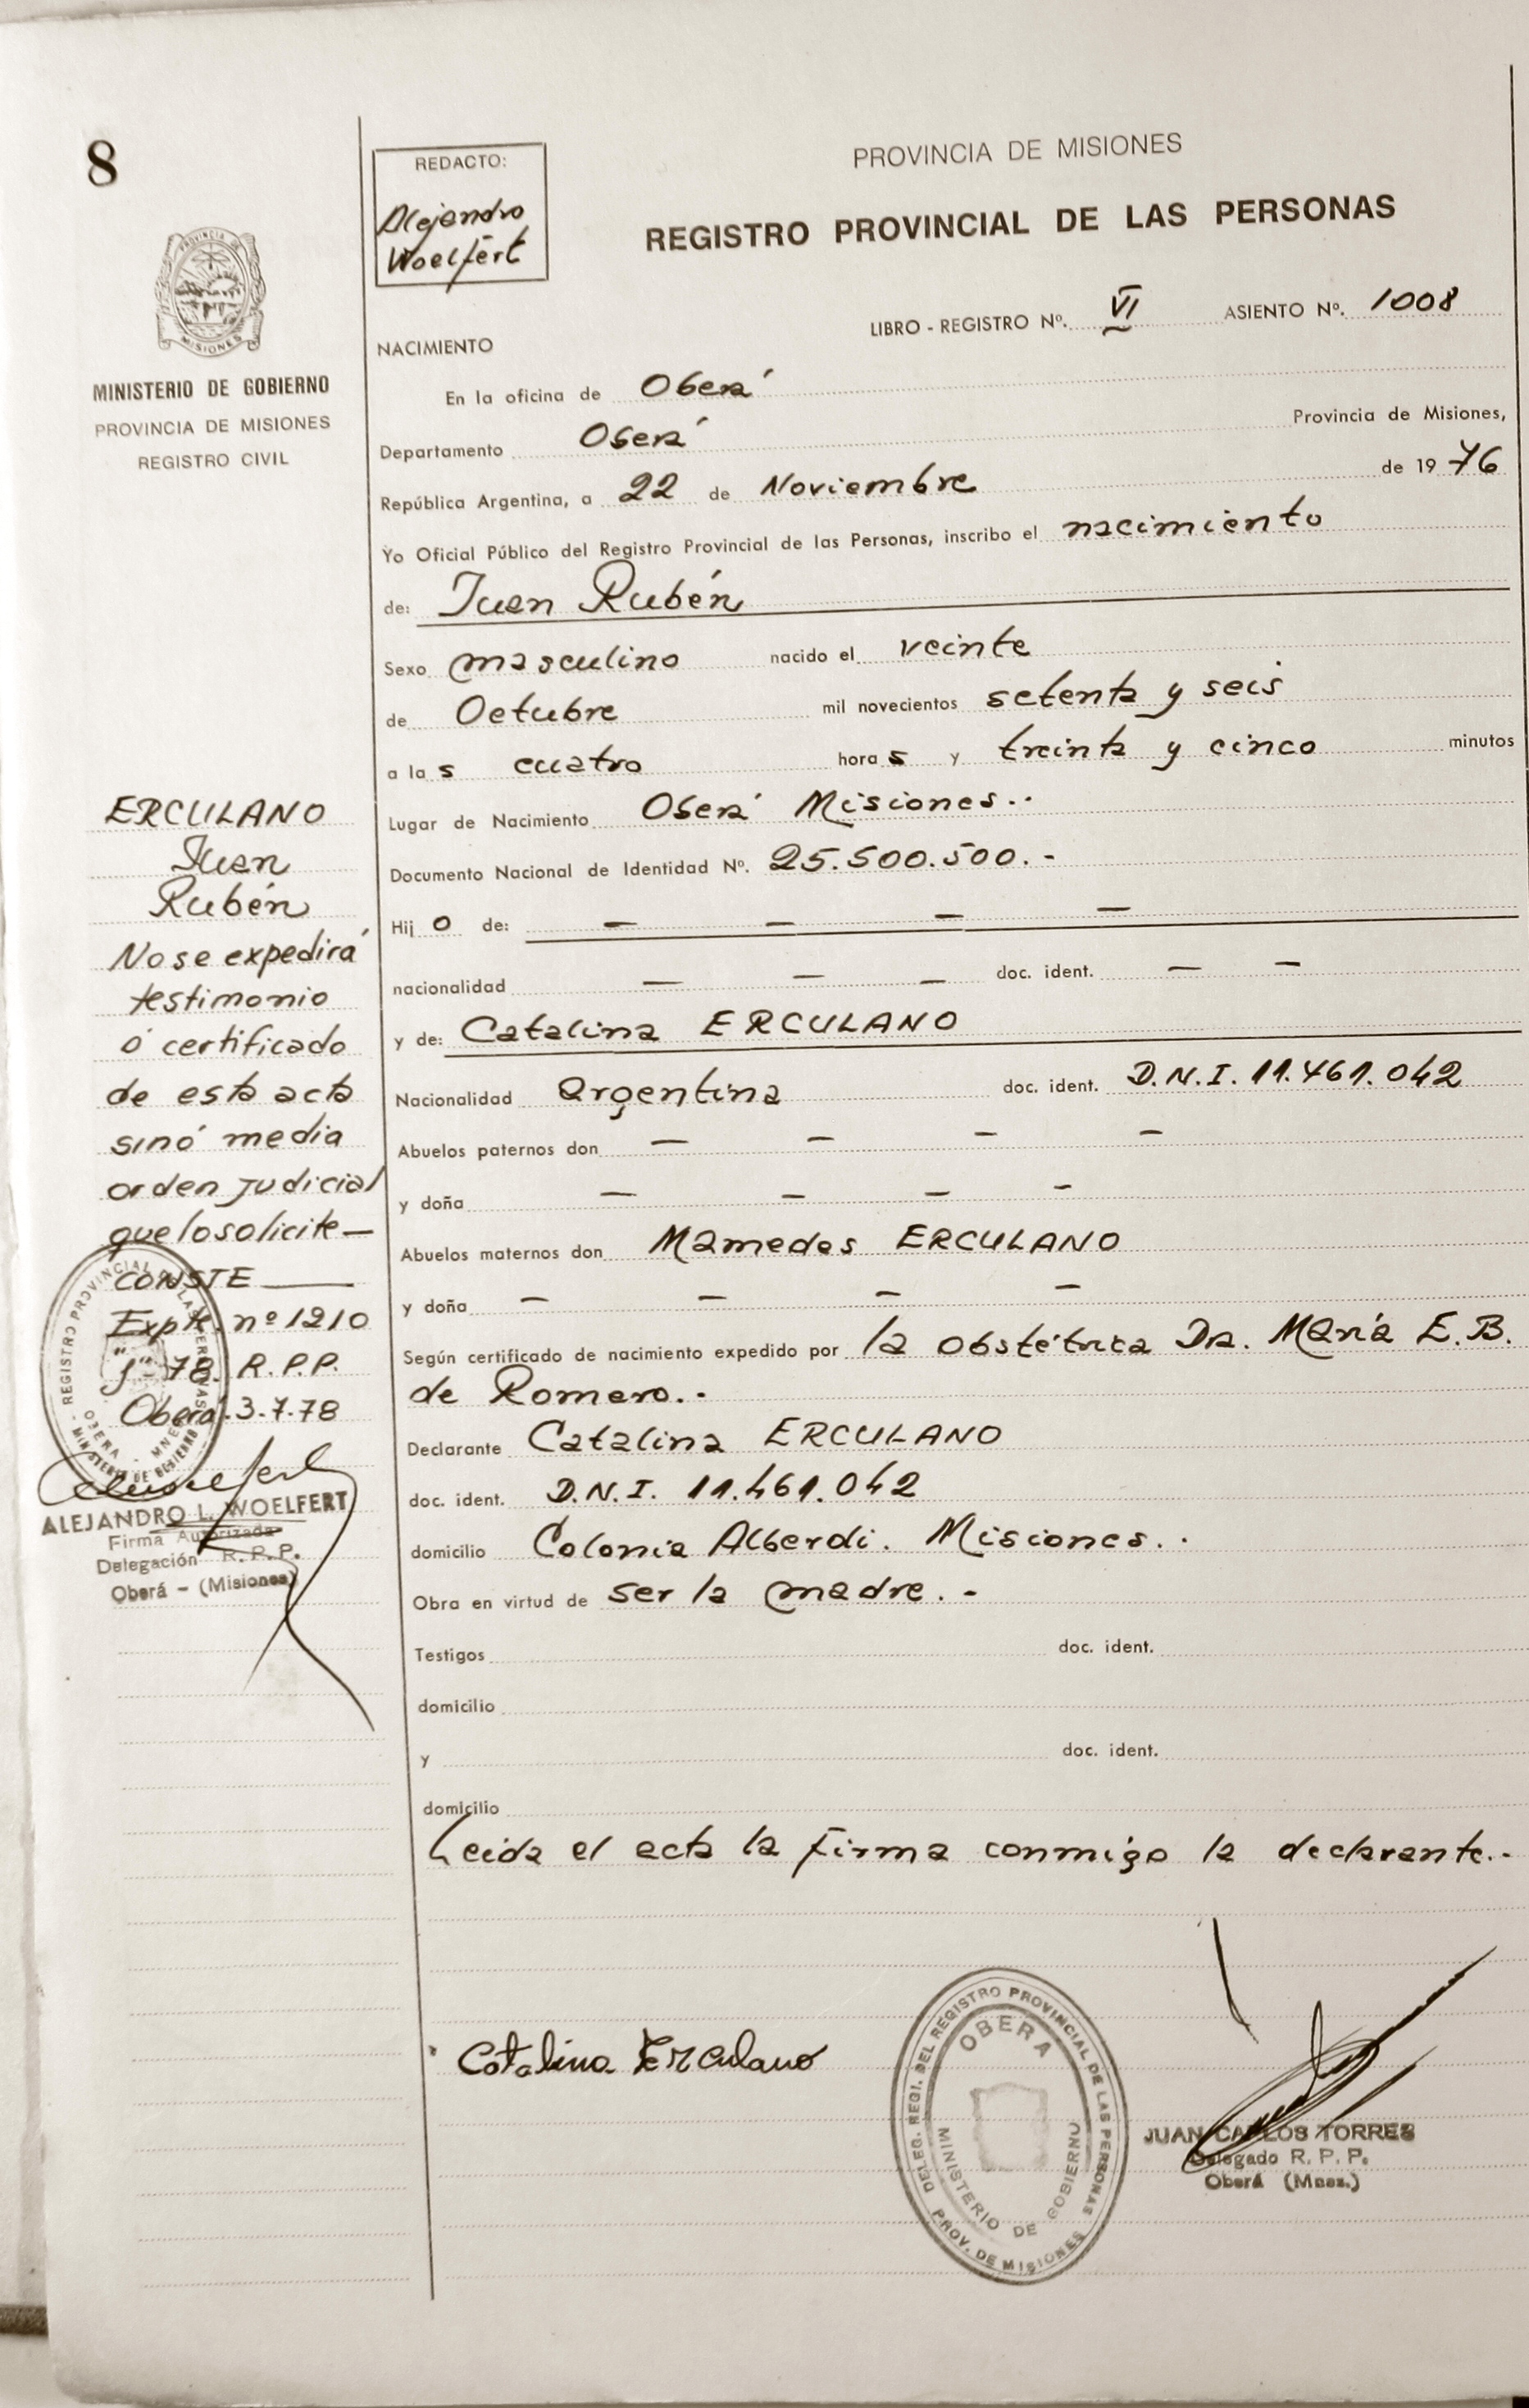 8
PROVINCIA DE
MISIONES
MINISTERIO DE GOBIERNO
PROVINCIA DE MISIONES
REGISTRO CIVIL
REDACTO:
Alejandro
Woelfert
PROVINCIA DE MISIONES
REGISTRO PROVINCIAL DE LAS PERSONAS
LIBRO - REGISTRO Nº. VI ASIENTO Nº. 1008
NACIMIENTO
En la oficina de Oberá
Departamento Oberá Provincia de Misiones,
República Argentina, a 22 de Noviembre de 1976
Yo Oficial Público del Registro Provincial de las Personas, inscribo el nacimiento
de: Juan Rubén
Sexo masculino nacido el veinte
de Octubre mil novecientos setenta y seis
a las cuatro horas y treinta y cinco minutos
Lugar de Nacimiento Oberá Misiones..
Documento Nacional de Identidad Nº. 25.500.500.-
Hijo de: — — — —
nacionalidad — — — doc. ident. — —
y de: Catalina ERCULANO
Nacionalidad argentina doc. ident. D.N.I. 11.461.042
Abuelos paternos don — — — —
y doña — — — -
Abuelos maternos don Mamedes ERCULANO
y doña — — — —
Según certificado de nacimiento expedido por la obstétrica Dra. María E.B.
de Romero.-
Declarante Catalina ERCULANO
doc. ident. D.N.I. 11.461.042
domicilio Colonia Alberdi. Misiones..
Obra en virtud de ser la madre.-
Testigos doc. ident.
domicilio
y doc. ident.
domicilio
Leida el acta la firma conmigo la declarante.-
Catalina Erculano
DELEG. REGI. DEL REGISTRO PROVINCIAL DE LAS PERSONAS
OBERA
MINISTERIO DE GOBIERNO
PROV. DE MISIONES
JUAN CARLOS TORRES
Delegado R. P. P.
Oberá (Mnes.)
ERCULANO
Juan
Rubén
No se expedirá
testimonio
ó certificado
de esta acta
sinó media
orden judicial
que lo solicite —
CONSTE
Expte. nº 1210
"J" 78. R.P.P.
Oberá. 3.7.78
REGISTRO PROVINCIAL DE LAS PERSONAS
OBERA - MNES
MINISTERIO DE GOBIERNO
ALEJANDRO L. WOELFERT
Firma Autorizada
Delegación R. P. P.
Oberá - (Misiones)